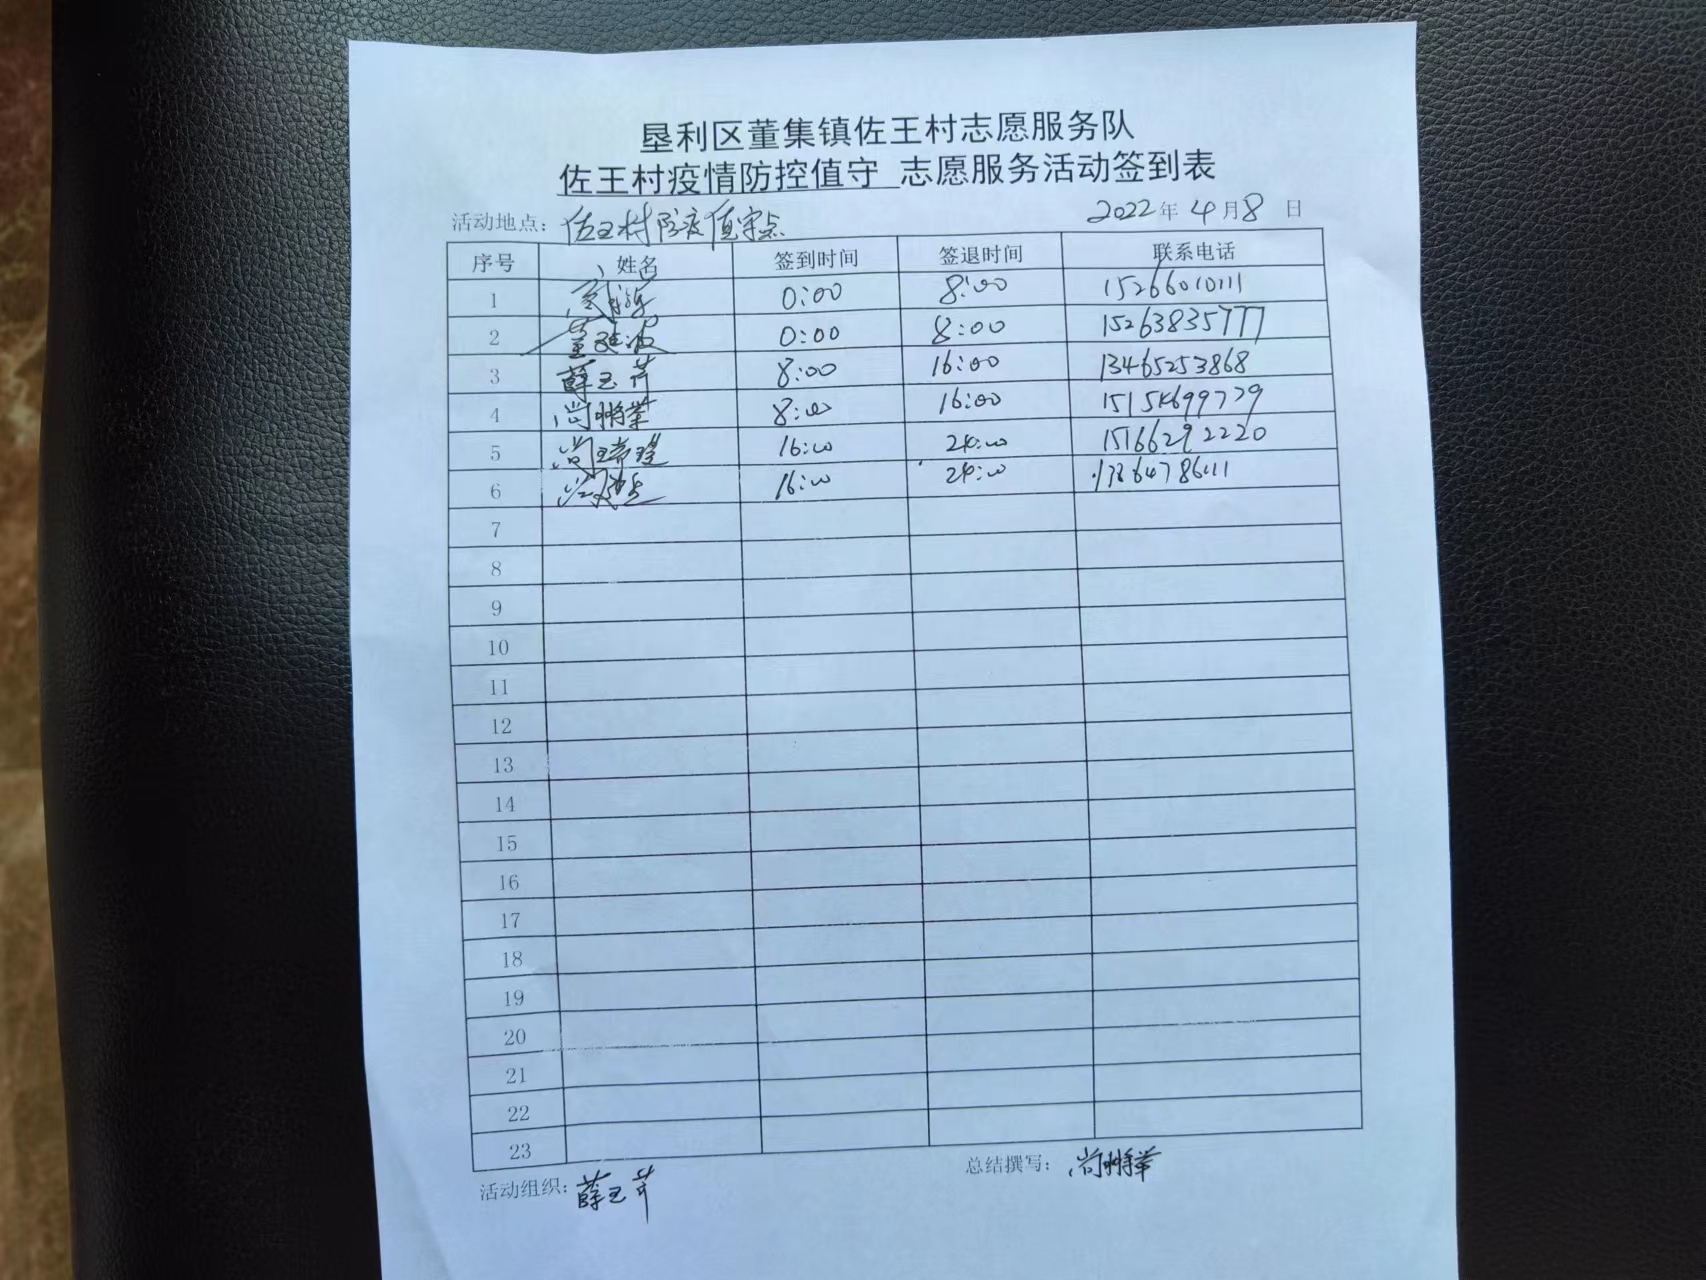 垦利区董集镇佐王村志愿服务队
佐王村疫情防控值守 志愿服务活动签到表
活动地点：佐王村防疫值守点 2022年4月8日
序号 姓名 签到时间 签退时间 联系电话
1 0:00 8:00 15266010111
2 董建波 0:00 8:00 15263835777
3 薛玉芹 8:00 16:00 13465253868
4 尚 8:00 16:00
5 尚瑞瑆 16:00 24:00 15166292220
6 16:00 24:00
7
8
9
10
11
12
13
14
15
16
17
18
19
20
21
22
23
活动组织：薛玉芹 总结撰写：尚